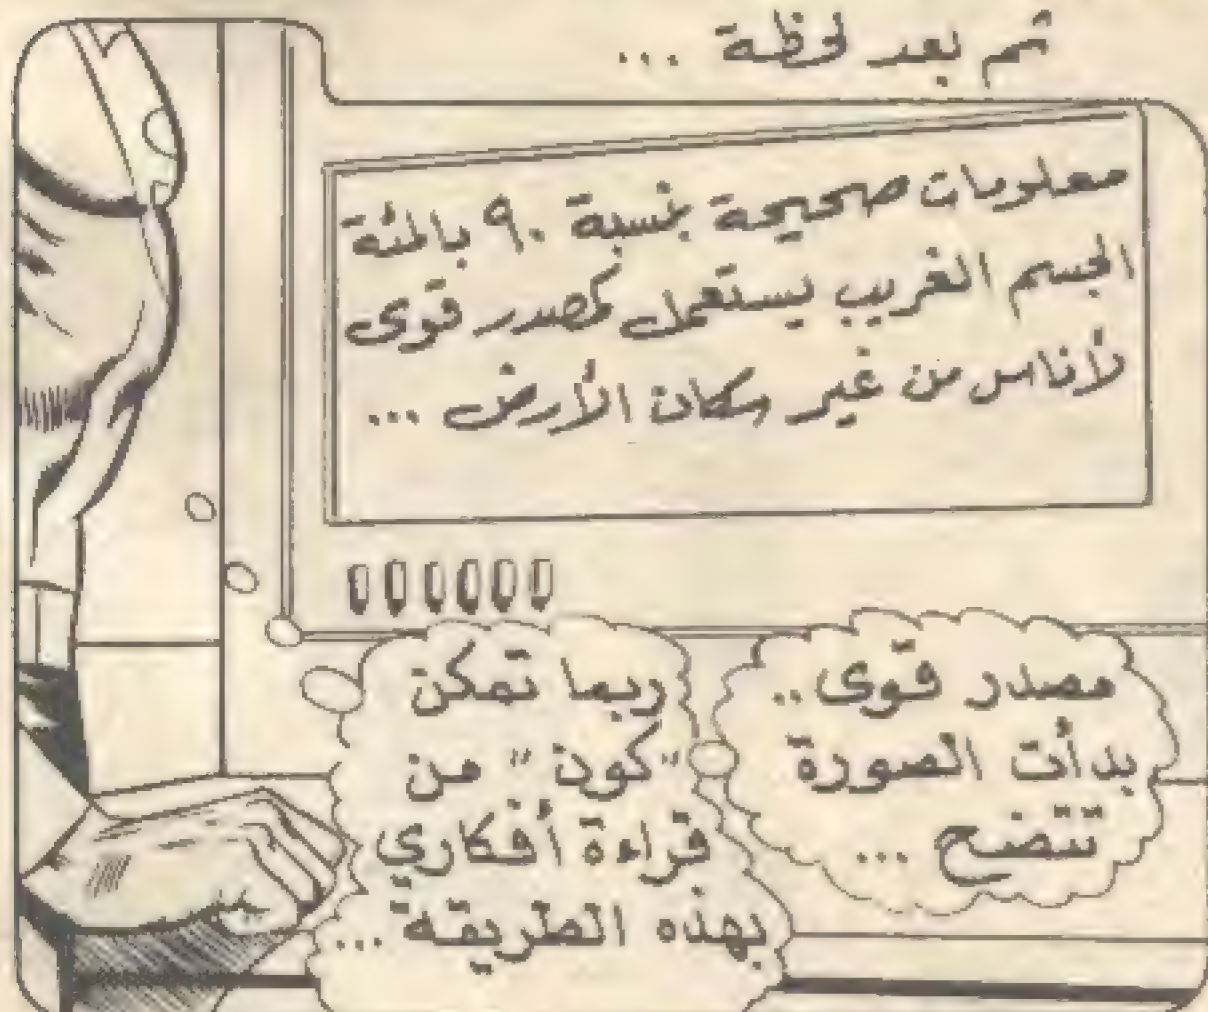 ثم بعد لحظة ...
معلومات صحيحة بنسبة ٩٠ بالمئة
الجسم الغريب يستعمل كمصدر قوى
لأناس من غير سكان الأرض ...
مصدر قوى ..
بدأت الصورة
تتضح ...
ربما تمكن
"كون" من
قراءة أفكاري
بهذه الطريقة ...